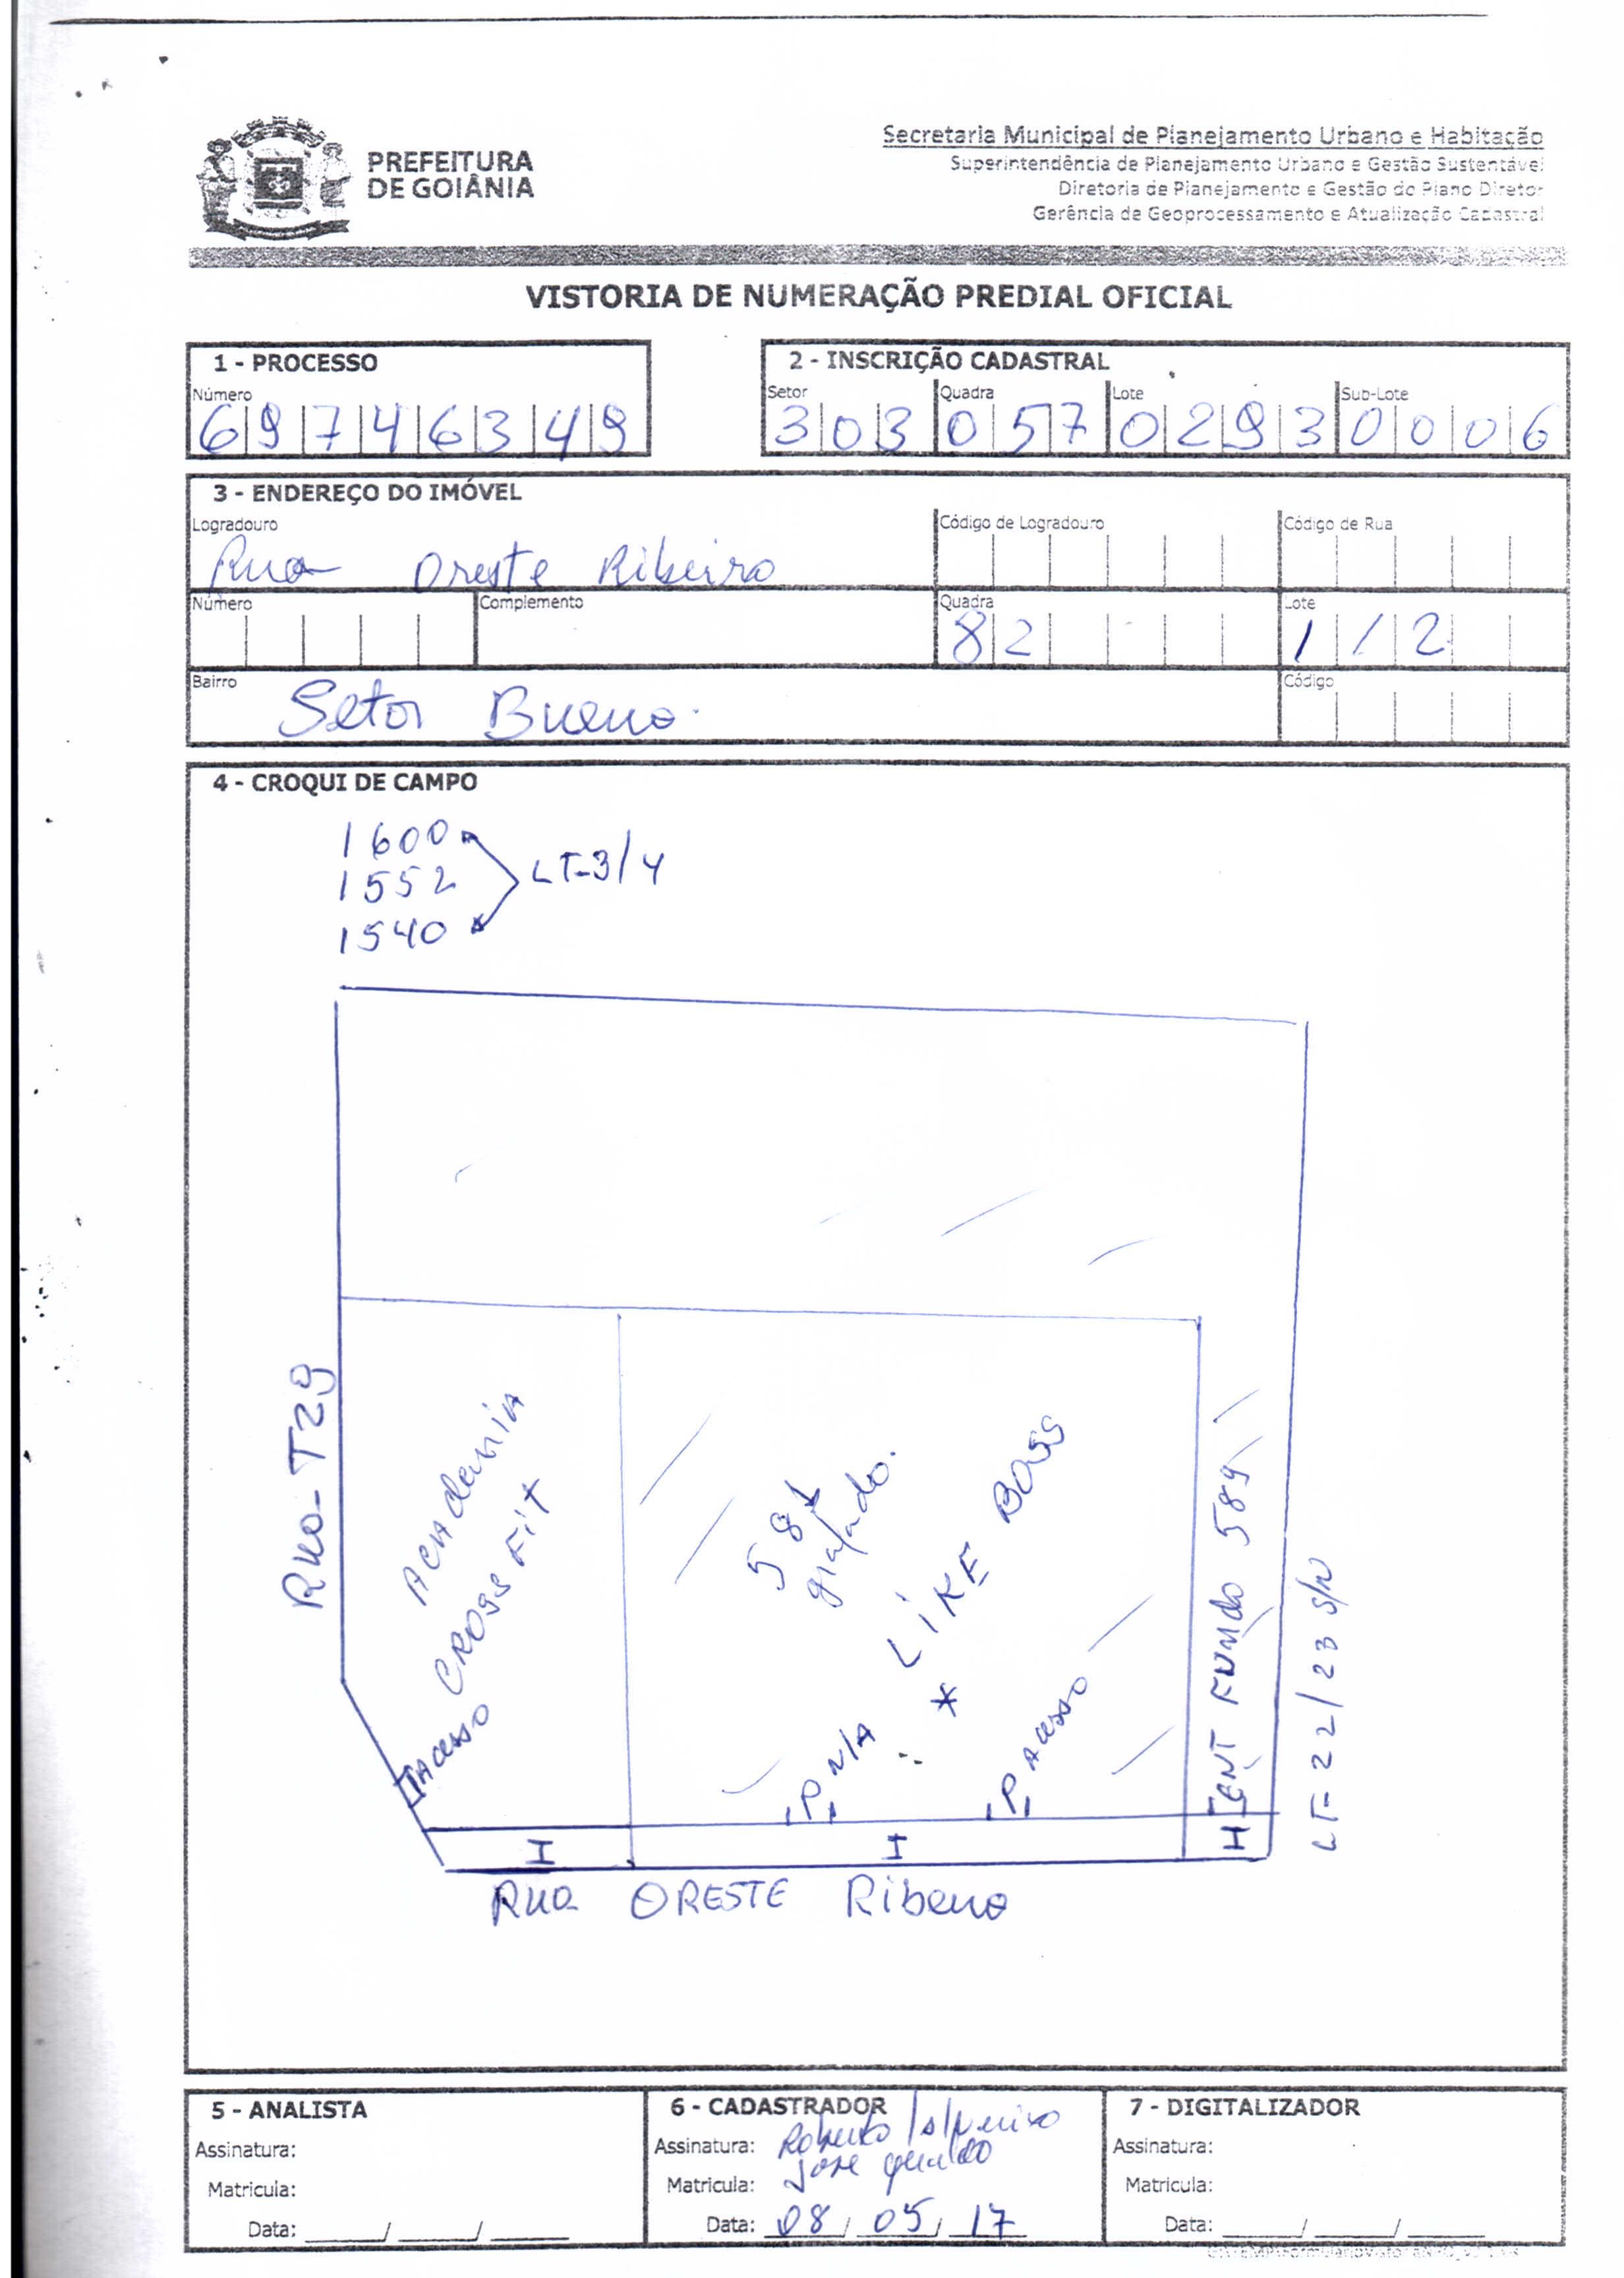 PREFEITURA
DE GOIÂNIA
Secretaria Municipal de Planejamento Urbano e Habitação
Superintendência de Planejamento Urbano e Gestão Sustentável
Diretoria de Planejamento e Gestão do Plano Diretor
Gerência de Geoprocessamento e Atualização Cadastral
VISTORIA DE NUMERAÇÃO PREDIAL OFICIAL
1 - PROCESSO
Número
69746349
2 - INSCRIÇÃO CADASTRAL
Setor Quadra Lote Sub-Lote
303 057 0293 0006
3 - ENDEREÇO DO IMÓVEL
Logradouro Código de Logradouro Código de Rua
Rua Oreste Ribeiro
Número Complemento Quadra Lote
82 1/2
Bairro Código
Setor Bueno
4 - CROQUI DE CAMPO
1600
1552 LT-3/4
1540
Rua-T29
ACADemia
CROSS Fit
Acesso
581
grafado.
* LIKE BOSS
P N/A
P Acesso
ENT FUNdo 589
LT-22/23 S/N
I I H
Rua ORESTE Ribeiro
5 - ANALISTA
Assinatura:
Matricula:
Data: ___/___/___
6 - CADASTRADOR
Assinatura: Roberto
José Geraldo
Matricula:
Data: 08/05/17
7 - DIGITALIZADOR
Assinatura:
Matricula:
Data: ___/___/___